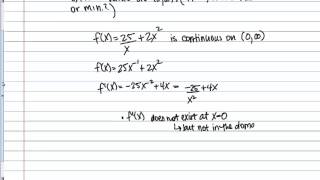 or min.?)
f(x) = 25/x + 2x² is continuous on (0,∞)
f(x) = 25x⁻¹ + 2x²
f'(x) = -25x⁻² + 4x = -25/x² + 4x
• f'(x) does not exist at x=0
↳ but not in the doma